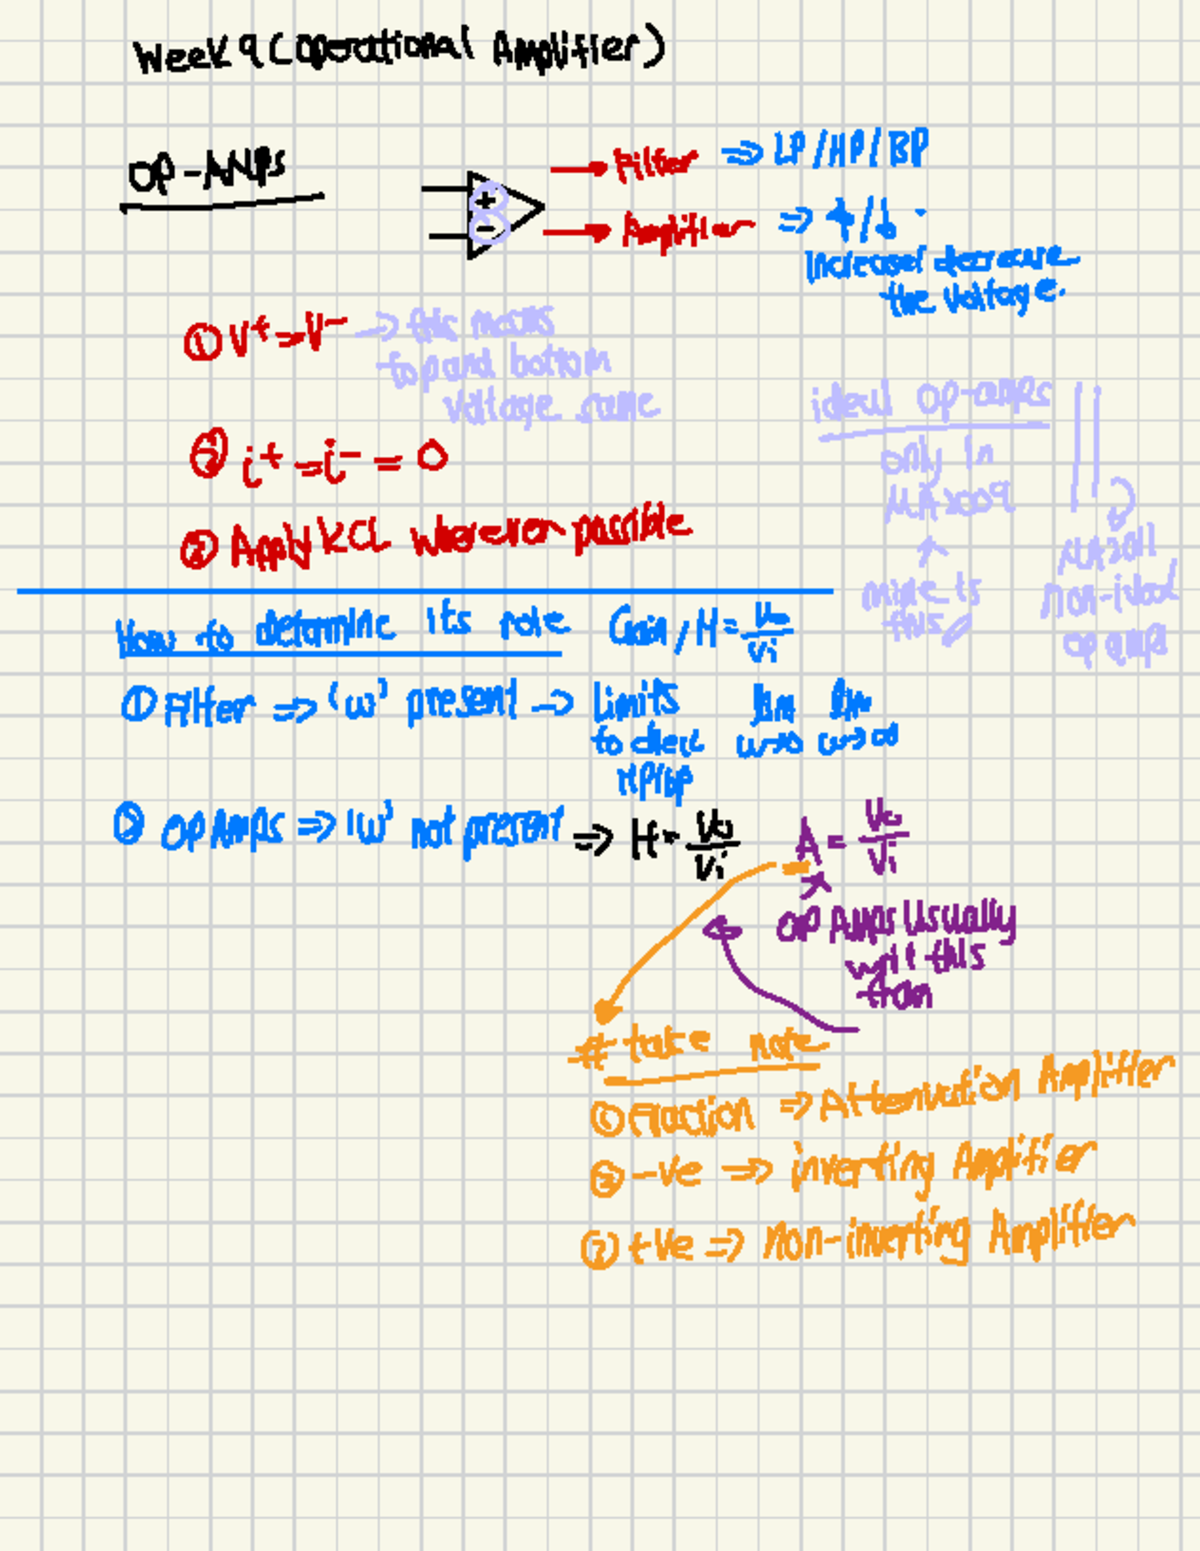 Week 9 (Operational Amplifier)
OP-AMPs
+
-
→ Filter ⇒ LP/HP/BP
→ Amplifier ⇒ ↑/↓
increase/ decrease
the voltage.
① V⁺ = V⁻ → this means
top and bottom
voltage same
② i⁺ = i⁻ = 0
③ Apply KCL wherever possible
ideal op-amps
only in
MA2009
↑
mine is
this
MA2011
non-ideal
op amps
How to determine its role Gain/H = Vo/Vi
① Filter ⇒ 'ω' present → Limits lim ω→0 lim ω→∞
to check
HP/LP
② OP Amps ⇒ 'ω' not present ⇒ H = Vo/Vi A = Vo/Vi
OP Amps Usually
writ this
from
# take note
① Fraction ⇒ Attenuation Amplifier
② -ve ⇒ inverting Amplifier
③ +ve ⇒ non-inverting Amplifier